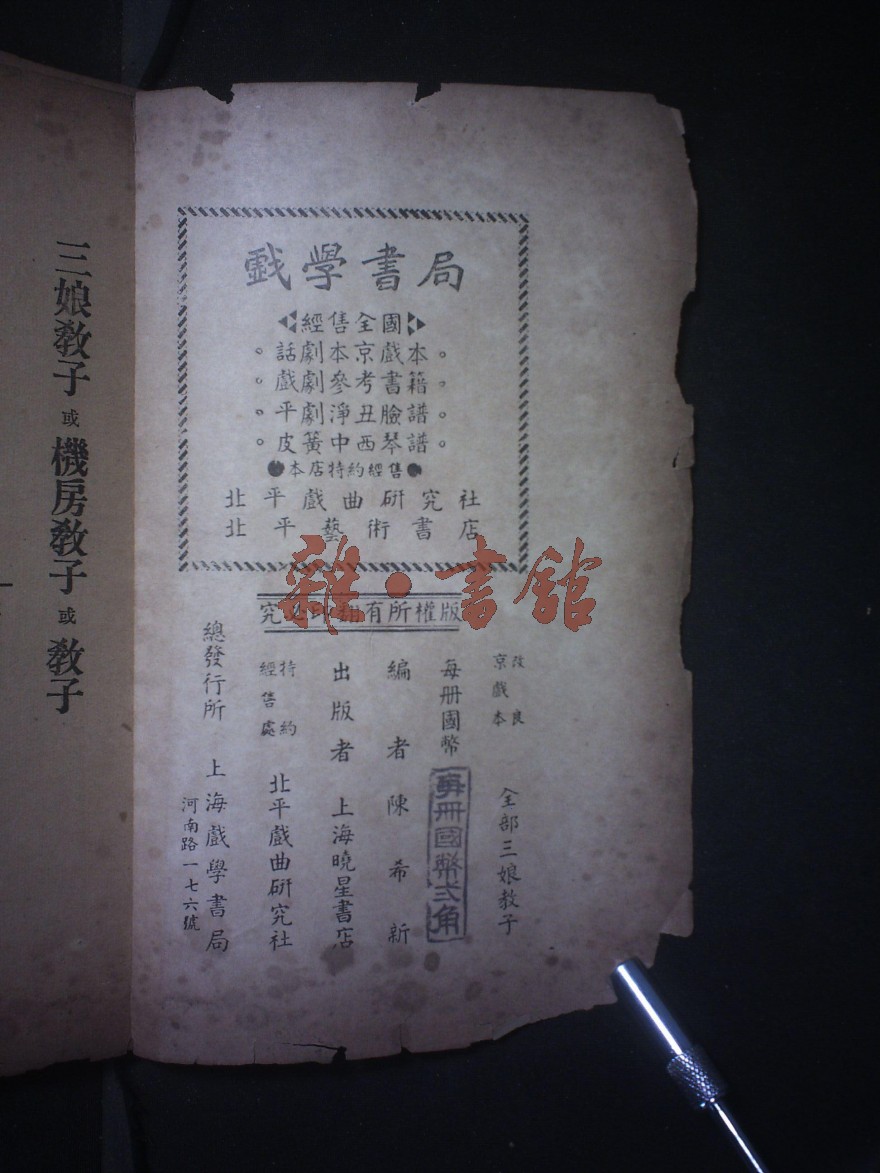 戲學書局
經售全國
。話劇本京戲本。
。戲劇參考書籍。
。平劇淨丑臉譜。
。皮簧中西琴譜。
●本店特約經售●
北平戲曲研究社
北平藝術書店
雜·書館
版權所有翻印必究
改良京戲本 全部三娘教子
每册國幣
每册國幣弍角
編者 陳希新
出版者 上海曉星書店
特約經售處 北平戲曲研究社
總發行所 上海戲學書局
河南路一七六號
三娘教子 或 機房教子 或 教子